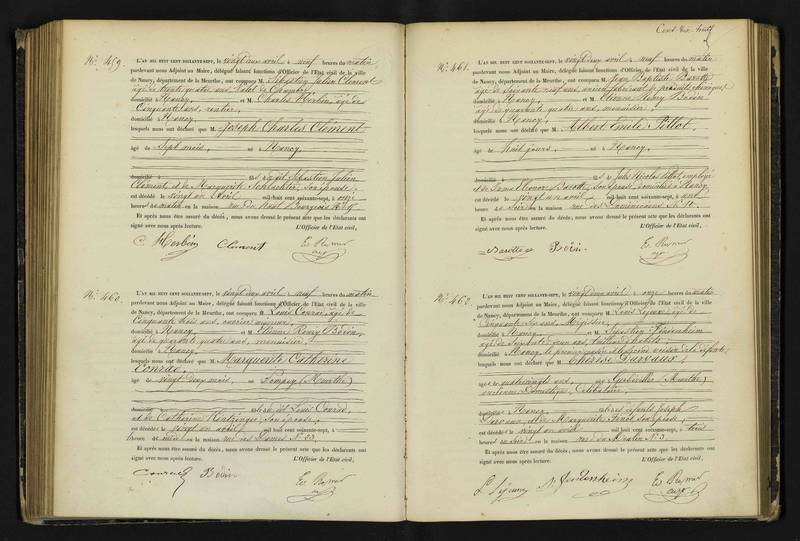 Cent dix huit
N.º 459.
L'AN MIL HUIT CENT SOIXANTE-SEPT, le vingt deux avril à neuf heures du matin
pardevant nous Adjoint au Maire, délégué faisant fonctions d'Officier de l'Etat civil de la ville
de Nancy, département de la Meurthe, ont comparu M. Sébastien Julien Clément
âgé de trente quatre ans, Valet de Chambre,
domicilié à Nancy, et M. Charles Herbin, âgé de
Cinquante ans, rentier,
domicilié à Nancy,
lesquels nous ont déclaré que M. Joseph Charles Clément
âgé de Sept mois, né à Nancy
domicilié à fils de Sébastien Julien
Clément et de Marguerite Schlachter, son épouse,
est décédé le vingt un avril mil huit cent soixante-sept, à onze
heures du matin en la maison rue du Haut Bourgeois
Et après nous être assuré du décès, nous avons dressé le présent acte que les déclarants ont
signé avec nous après lecture. L'Officier de l'Etat civil,
C. Herbin Clément
N.º 460.
L'AN MIL HUIT CENT SOIXANTE-SEPT, le vingt deux avril à neuf heures du matin
pardevant nous Adjoint au Maire, délégué faisant fonctions d'Officier de l'Etat civil de la ville
de Nancy, département de la Meurthe, ont comparu M. Louis Conrad, âgé de
Cinquante trois ans, ouvrier
domicilié à Nancy, et M. Etienne Remy Bévin,
âgé de quarante quatre ans, menuisier,
domicilié à Nancy,
lesquels nous ont déclaré que M. Marguerite Catherine
Conrad,
âgé de vingt deux mois, né à Pompey (Meurthe)
domicilié à fille de Louis Conrad,
et de Catherine son épouse,
est décédé le vingt un avril mil huit cent soixante-sept, à
heures en la maison rue des Dames N.º 23.
Et après nous être assuré du décès, nous avons dressé le présent acte que les déclarants ont
signé avec nous après lecture. L'Officier de l'Etat civil,
Conrad Bévin
N.º 461.
L'AN MIL HUIT CENT SOIXANTE-SEPT, le vingt deux avril à neuf heures du matin
pardevant nous Adjoint au Maire, délégué faisant fonctions d'Officier de l'Etat civil de la ville
de Nancy, département de la Meurthe, ont comparu M. Jean Baptiste Barotte
âgé de soixante neuf ans, ancien fabricant de produits chimiques,
domicilié à Nancy, et M. Etienne Remy Bévin
âgé de quarante quatre ans, menuisier,
domicilié à Nancy,
lesquels nous ont déclaré que M. Albert Emile Pillot,
âgé de huit jours, né à Nancy,
domicilié à fils de Jules Nicolas Pillot, employé
et de Dame Eléonore Barotte, son épouse, domiciliés à Nancy
est décédé le vingt un avril mil huit cent soixante-sept, à une
heure du soir en la maison rue des Dominicains N.º
Et après nous être assuré du décès, nous avons dressé le présent acte que les déclarants ont
signé avec nous après lecture. L'Officier de l'Etat civil,
Barotte Bévin
N.º 462.
L'AN MIL HUIT CENT SOIXANTE-SEPT, le vingt deux avril à onze heures du matin
pardevant nous Adjoint au Maire, délégué faisant fonctions d'Officier de l'Etat civil de la ville
de Nancy, département de la Meurthe, ont comparu M. Louis Lejeune, âgé de
Cinquante six ans,
domicilié à Nancy, et M. Sébastien
âgé de soixante ans, tailleur d'habits,
domicilié à Nancy, le premier et le second voisin de la défunte,
lesquels nous ont déclaré que M. Thérèse Darvaux,
âgé de quatrevingt ans, né à Gerbéviller (Meurthe)
ancienne domestique, Célibataire,
domicilié à Nancy, fille des défunts Joseph
Darvaux et de Marguerite son épouse,
est décédé le vingt un avril mil huit cent soixante-sept, à trois
heures du soir en la maison rue du Moulin N.º 3.
Et après nous être assuré du décès, nous avons dressé le présent acte que les déclarants ont
signé avec nous après lecture. L'Officier de l'Etat civil,
L. Lejeune